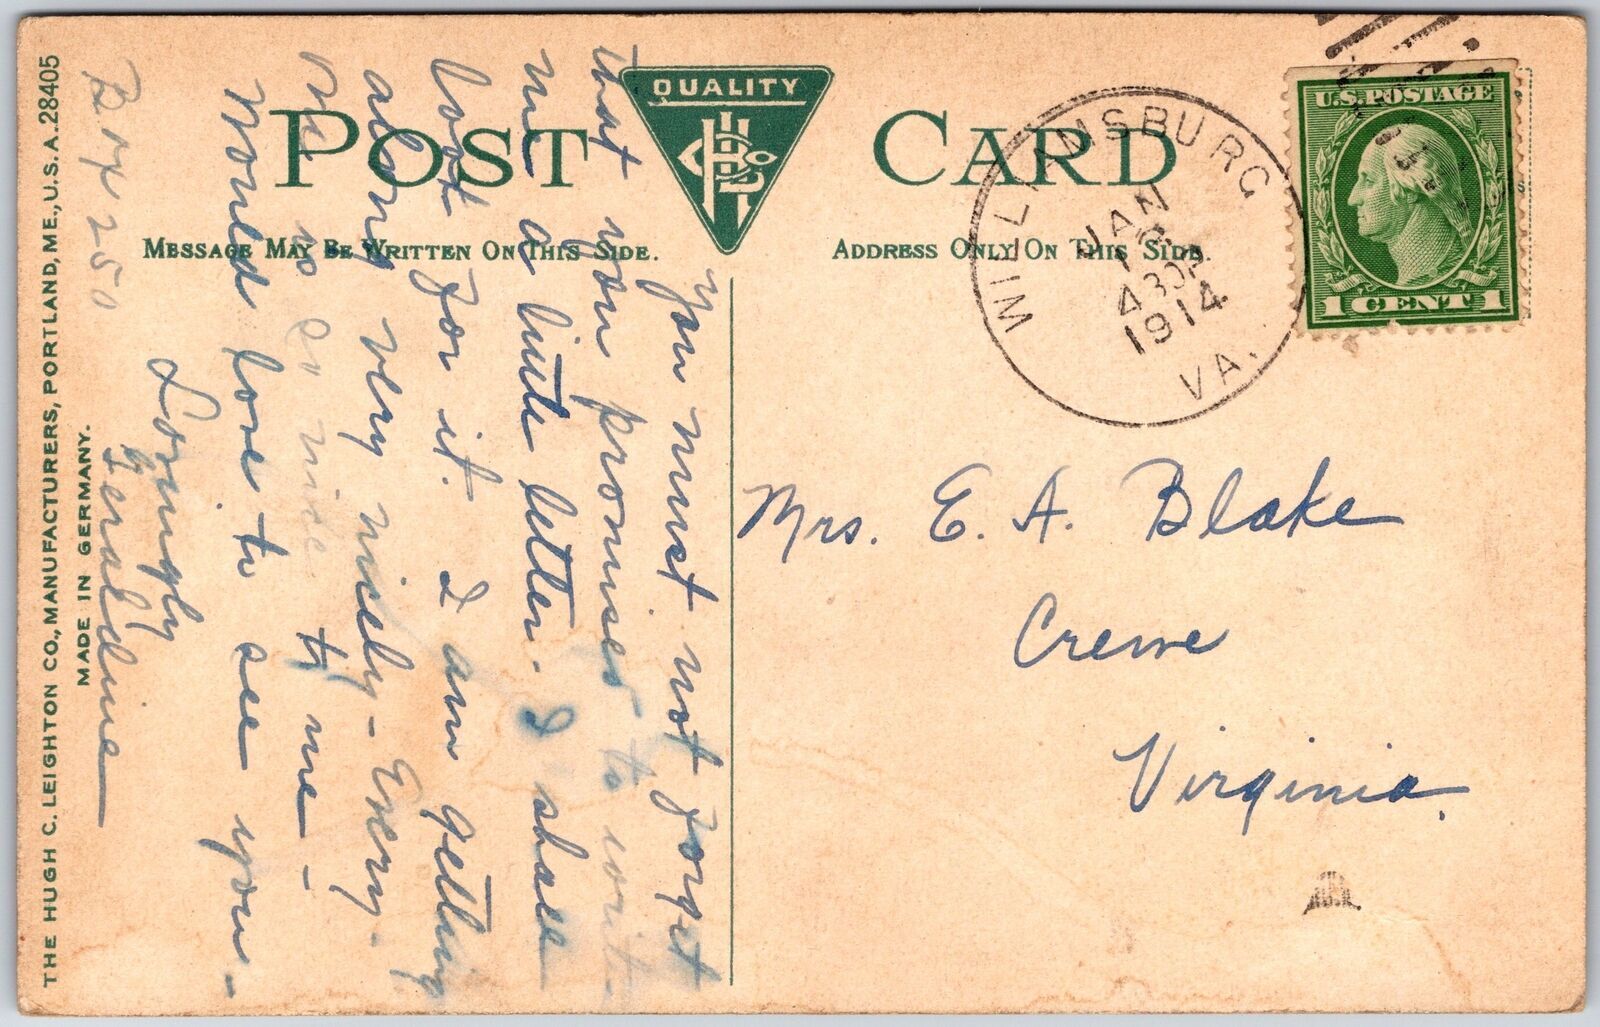 THE HUGH C. LEIGHTON CO., MANUFACTURERS, PORTLAND, ME., U.S.A. 28405
MADE IN GERMANY.
POST CARD
QUALITY
MESSAGE MAY BE WRITTEN ON THIS SIDE.
ADDRESS ONLY ON THIS SIDE.
WILLIAMSBURG
JAN
430P
1914
VA.
U.S. POSTAGE
1 CENT 1
You must not forget
that you promised to write
me a little letter. I shall
look for it. I am getting
along very nicely - Every
one is so nice to me -
Would love to see you -
Lovingly
Geraldine
Box 250
Mrs. E. A. Blake
Crewe
Virginia.